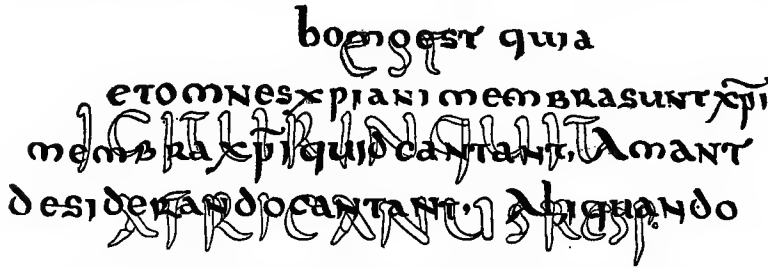 homo est quia
est
et omnes xp̄iani membra sunt xp̄i
IGITUR INQUIT
membra xp̄i quid cantant. Amant
desiderando cantant. Aliquando
AFRICANUS RESP